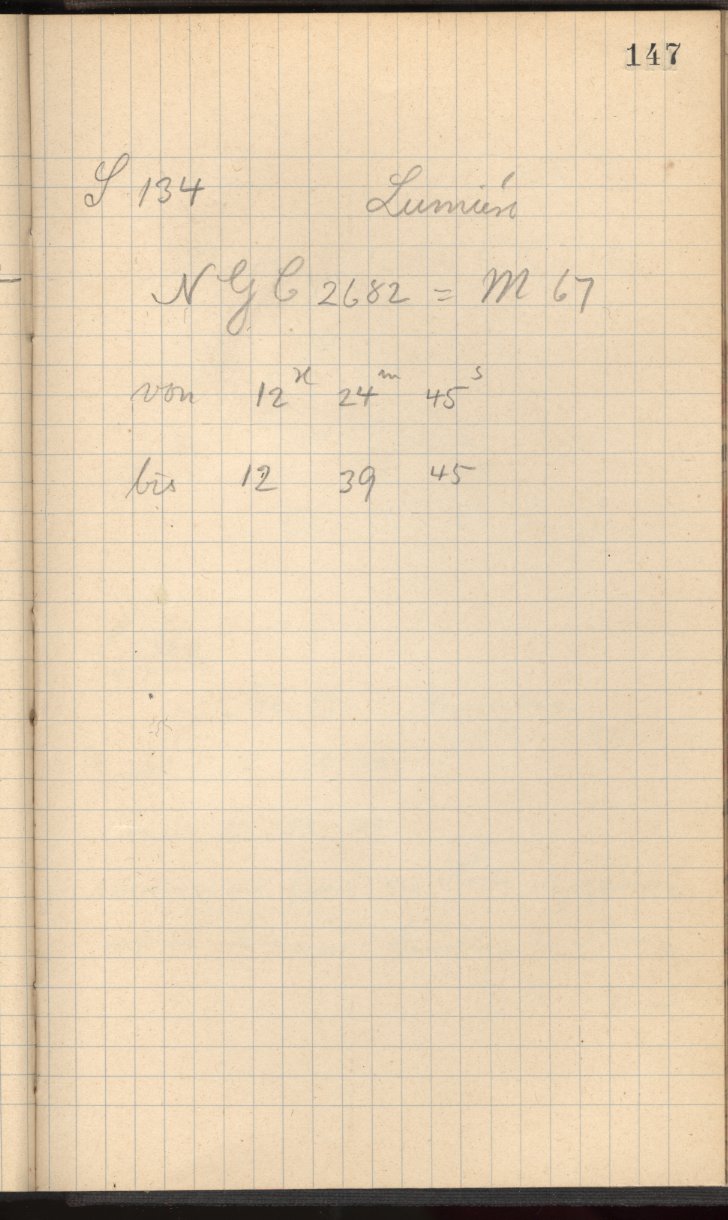 147
S 134 Lumière
NGC 2682 = M 67
von 12ʰ 24ᵐ 45ˢ
bis 12 39 45